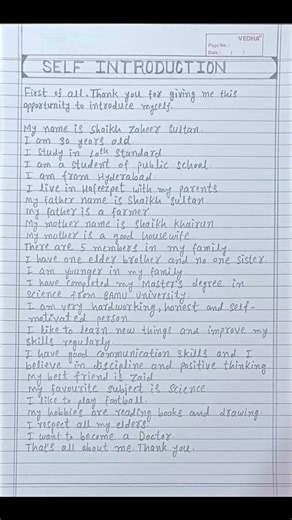 VEDHA
Page No :
Date : / /
SELF INTRODUCTION
First of all. Thank you for giving me this
opportunity to introduce myself.
My name is Shaikh Zaheer Sultan.
I am 30 years old
I Study in 10th Standard
I am a student of public school.
I am from Hyderabad
I live in Hafeezpet with my parents
My father name is Shaikh Sultan
My father is a farmer
My mother name is Shaikh Khairun
My mother is a good housewife
There are 5 members in my family
I have one elder brother and no one sister.
I am younger in my family
I have completed my Master's degree in
science from BAMU University.
I am very hardworking, honest and self-
motivated person
I like to learn new things and improve my
skills regularly.
I have good communication skills and I
believe in discipline and positive thinking
My best friend is Zaid
My favourite subject is Science
I like to play football.
My hobbies are reading books and drawing
I respect all my elders
I want to become a Doctor.
That's all about me. Thank you.